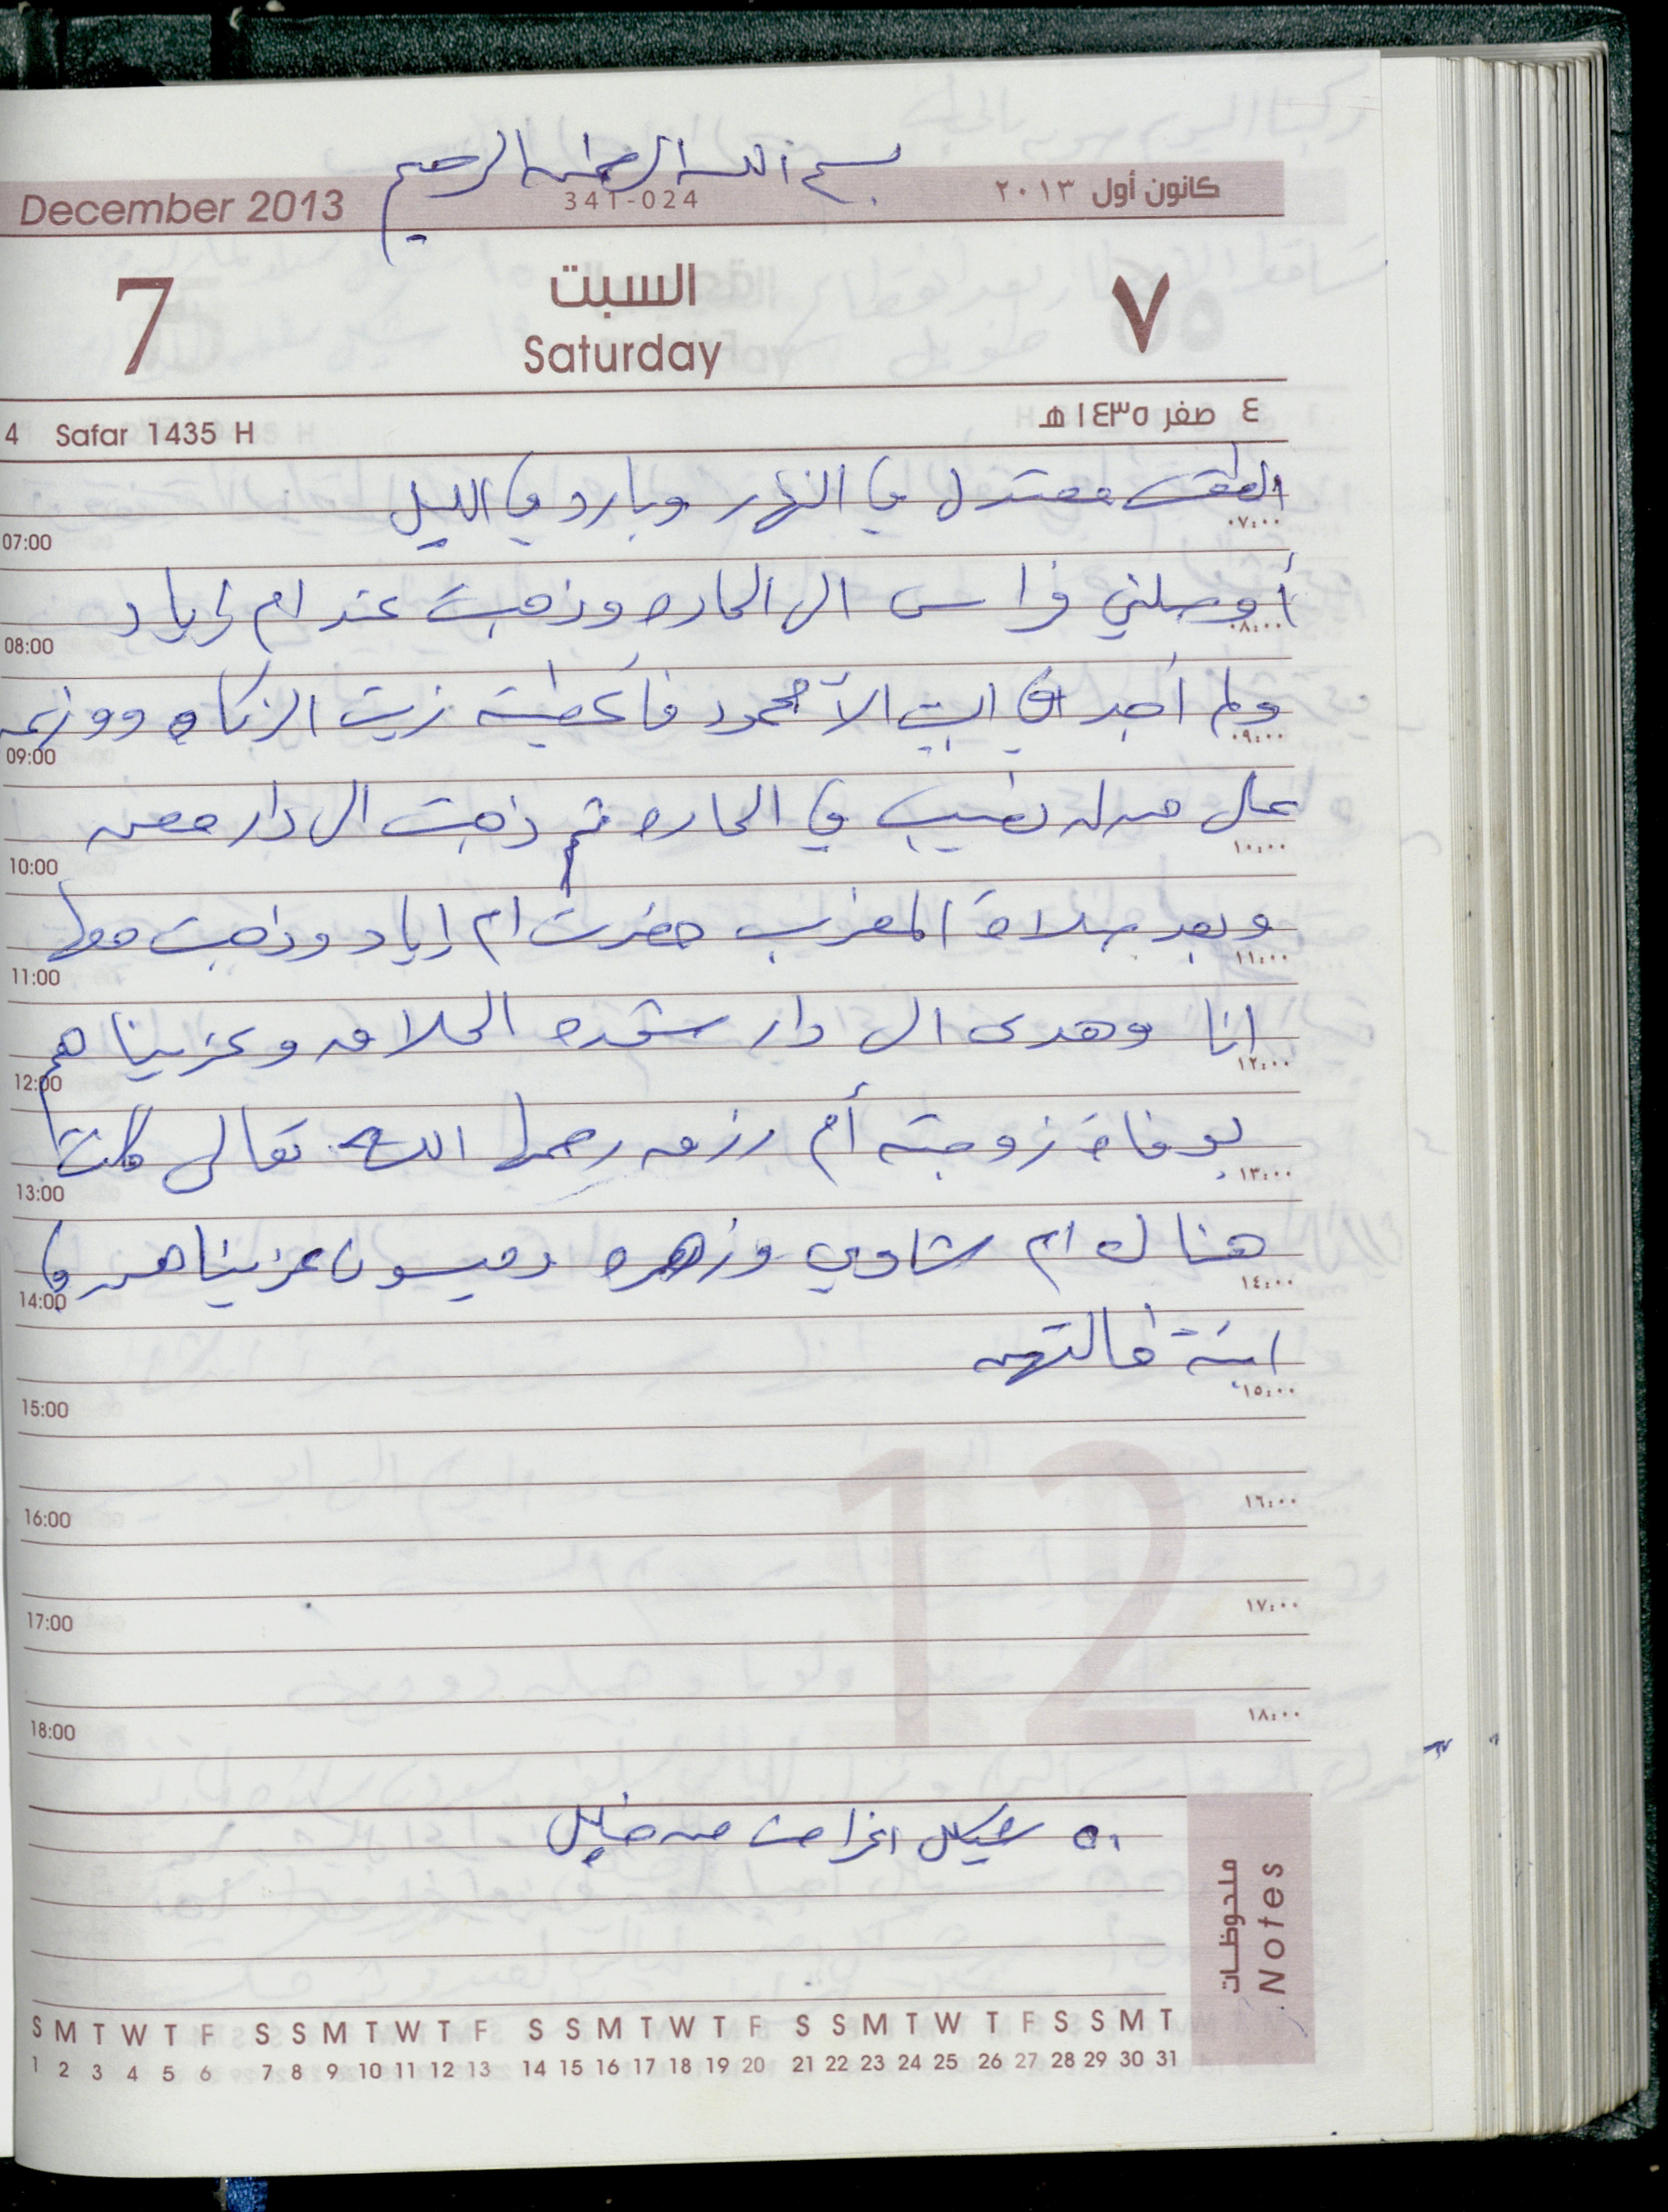 بسم الله الرحمن الرحيم
December 2013 341-024 كانون أول ٢٠١٣
7 السبت ٧
Saturday
4 Safar 1435 H ٤ صفر ١٤٣٥ هـ
الطقس معتدل في النهار وبارد في الليل
07:00 ٠٧:٠٠
أوصلني فراس الى الحاره وذهبت عند ام اياد
08:00 ٠٨:٠٠
ولم أجد في البيت الا محمود فأعطيته زيت الزكاه ووزعه
09:00 ٠٩:٠٠
على من له نصيب في الحاره ثم ذهبت الى دار معن
10:00 ١٠:٠٠
وبعد صلاة المغرب حضرت ام اياد وذهبت معها
11:00 ١١:٠٠
انا وهدى الى دار شحده الحلاق وعزيناهم
12:00 ١٢:٠٠
بوفاة زوجته أم رزق رحمها الله تعالى كانت
13:00 ١٣:٠٠
هناك ام شاوي وزهره وميسون عزيناهن في
14:00 ١٤:٠٠
ابنة خالتهن
15:00 ١٥:٠٠
16:00 ١٦:٠٠
17:00 ١٧:٠٠
18:00 ١٨:٠٠
12
٥٠ شيكل من خليل
ملحوظات
Notes
S M T W T F S S M T W T F S S M T W T F S S M T W T F S S M T
1 2 3 4 5 6 7 8 9 10 11 12 13 14 15 16 17 18 19 20 21 22 23 24 25 26 27 28 29 30 31